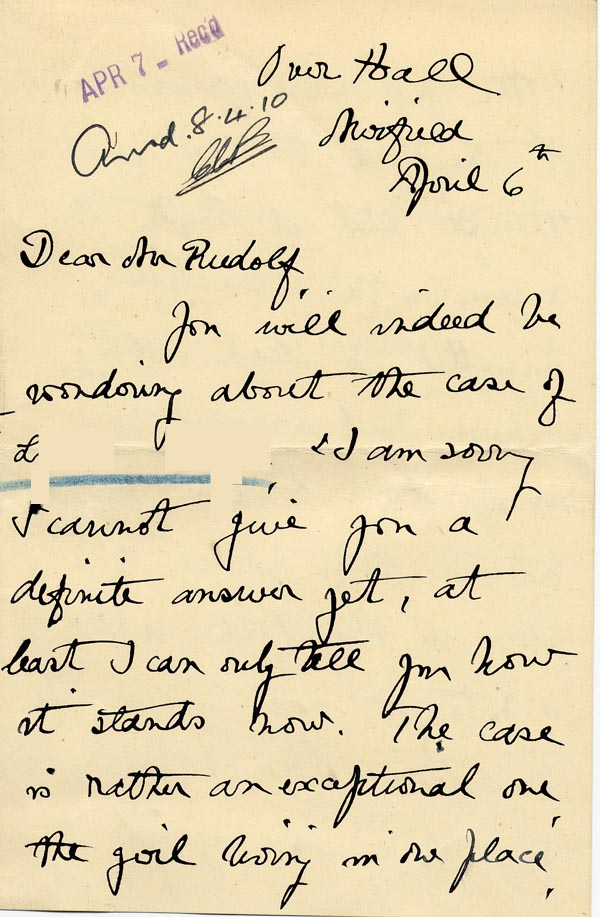 APR 7 - Recd
Over Hall
Ansd. 8.4.10
Mirfield
April 6th
Dear Mr Rudolf
You will indeed be
wondering about the case of
& I am sorry
I cannot give you a
definite answer yet, at
least I can only tell you how
it stands now. The case
is rather an exceptional one,
the girl living in one place,